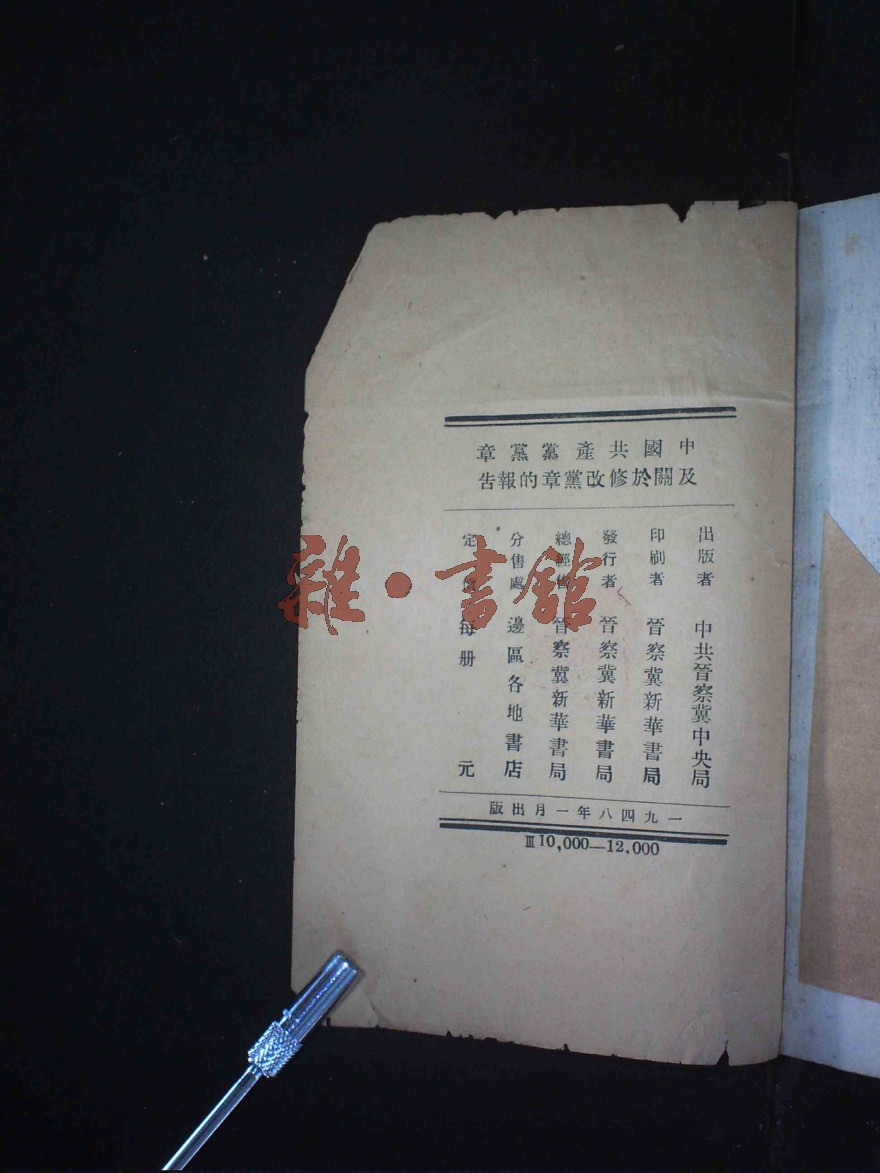 中國共產黨黨章
及關於修改黨章的報告
出版者 中共晉察冀中央局
印刷者 晉察冀新華書局
發行者 晉察冀新華書局
總經售 晉察冀新華書局
分售處 邊區各地書店
定價 每册 元
一九四八年一月出版
Ⅲ10,000—12,000
雜·書館